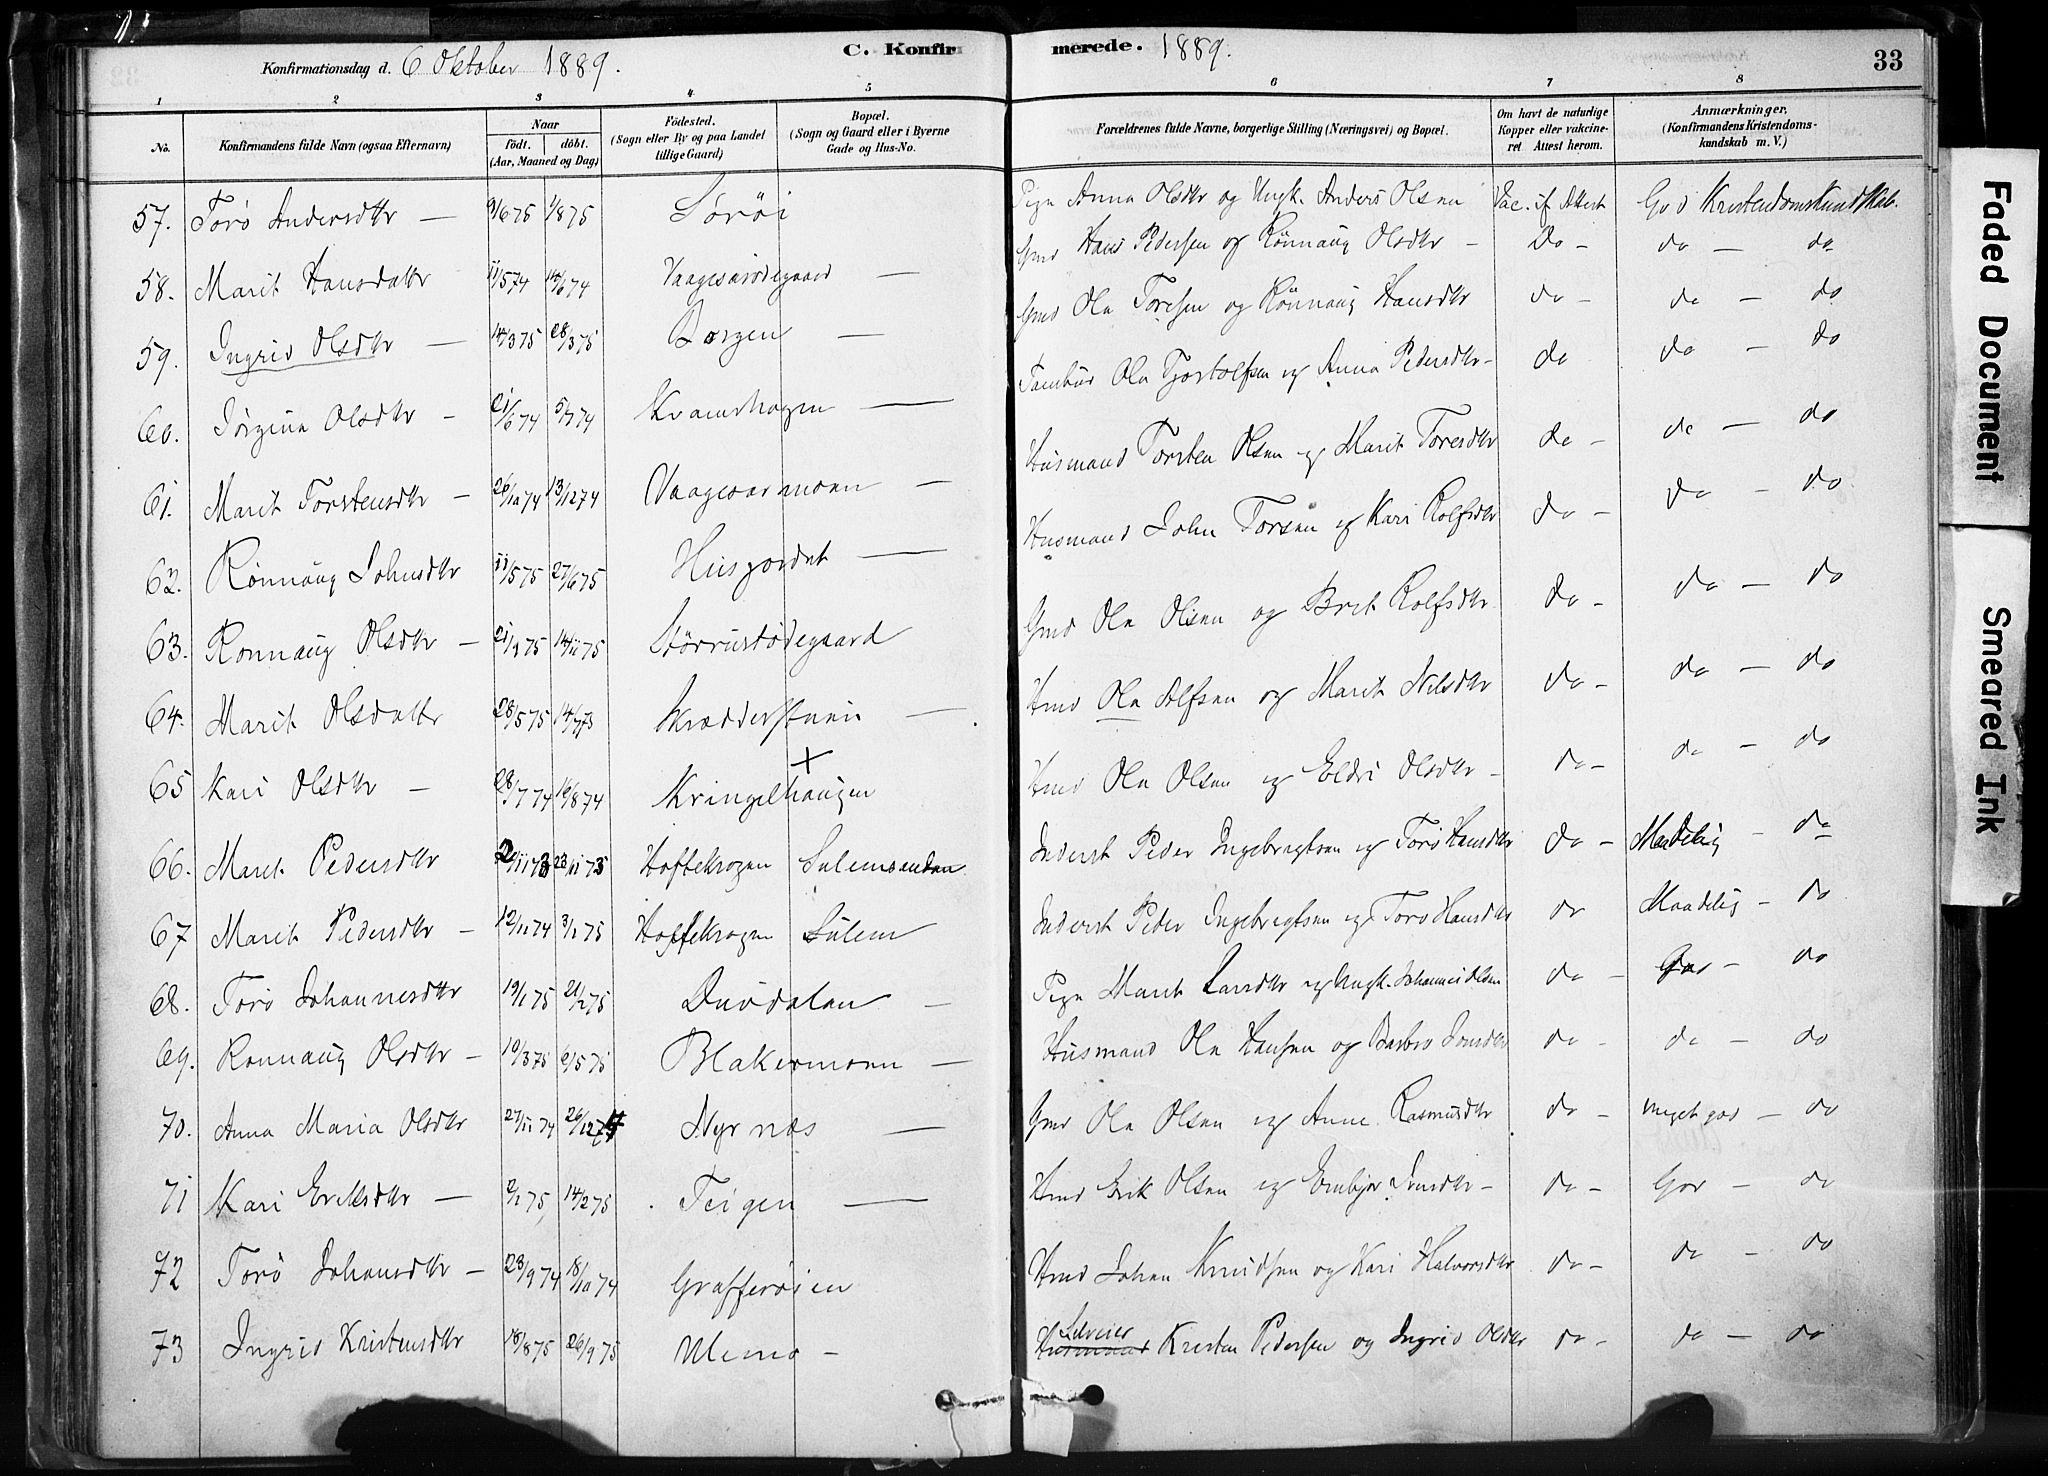 Konfirmationsdag d. 6 Oktober 1889. C. Konfirmerede. 1889. 33
1 2 3 4 5 6 7 8
No. Konfirmandens fulde Navn (ogsaa Efternavn) Naar født. døbt. (Aar, Maaned og Dag) Fødested. (Sogn eller By og paa Landet tillige Gaard) Bopæl. (Sogn og Gaard eller i Byerne Gade og Hus-No. Forældrenes fulde Navne, borgerlige Stilling (Næringsvei) og Bopæl. Om havt de naturlige Kopper eller vakcineret Attest herom. Anmærkninger. (Konfirmandens Kristendomskundskab m. V.)
57. Torø Andersdtr — 9/6 75 1/8 75 Sørøi Pige Anna Olsdtr og Ungk. Anders Olsen Vac. if. Attest God Kristendomskundskab.
58. Marit Hansdatter 11/5 74 14/6 74 — Gmd Hans Pedersen og Rønnaug Olsdtr — Do — do — do
59. Ingrid Olsdtr — 14/3 75 28/3 75 Borgen — Gmd Ola Toresen og Rønnaug Hansdtr do — do — do
60. Jørgina Olsdtr — 21/6 74 5/7 74 Kramerhagen — Tambur Ola Tjostolfsen og Anna Pedersdtr — do do — do
61. Marit Torstensdtr — 26/10 74 13/12 74 Vaagesarmoen — Husmand Torsten Olsen og Marit Toresdtr do — do — do
62. Rønnaug Johnsdtr 11/5 75 27/6 75 Husjordet — Husmand John Torsen og Kari Rolfsdtr do — do — do
63. Ronnaug Olsdtr — 21/9 75 14/11 75 Størrustødegaard Gmd Ola Olsen og Brit Rolfsdtr do — do — do
64. Marit Olsdatter 28/5 75 14/7 75 Skrædderstuen — Hmd Ola Alfsen og Marit Nilsdtr do — do — do
65 Kari Olsdtr — 28/7 74 16/8 74 Kringelhaugen Hmd Ola Olsen og Eldri Olsdtr — do — do — do
66. Marit Pedersdtr 2/11 73 23/11 73 Hoftekrogen Sulemsendan Inderst Peder Ingebregtsen og Torø Hansdtr do — Maadelig — do
67 Marit Pedersdtr — 12/11 74 3/1 75 Hoftekrogen Sulem Inderst Peder Ingebregtsen og Toro Hansdtr do Maadelig — do
68. Torø Johannesdtr 19/1 75 21/2 75 Duvdalen — Pige Marit Larsdtr og Ungk. Johannes Olsen do — God — do
69. Ronnaug Olsdtr — 10/3 75 2/5 75 Blakermoen — Husmand Ola Hansen og Barbro Jonsdtr do — do — do
70. Anna Maria Olsdtr 27/11 74 26/12 74 Nyrnæs — Gmd Ola Olsen og Anne Rasmusdtr do — meget god — do
71 Kari Eriksdtr — 2/1 75 14/2 75 Teigen — Hmd Erik Olsen og Embjør Jonsdtr — do — God — do
72 Torø Johansdtr — 23/9 74 18/10 74 Grafferøien Hmd Johan Knudsen og Kari Halvorsdtr do — do — do
73 Ingrid Kristensdtr 18/8 75 26/9 75 Memo — Husmand Selveier Kristen Pedersen og Ingrid Olsdtr do — do — do
Faded Document
Smeared Ink